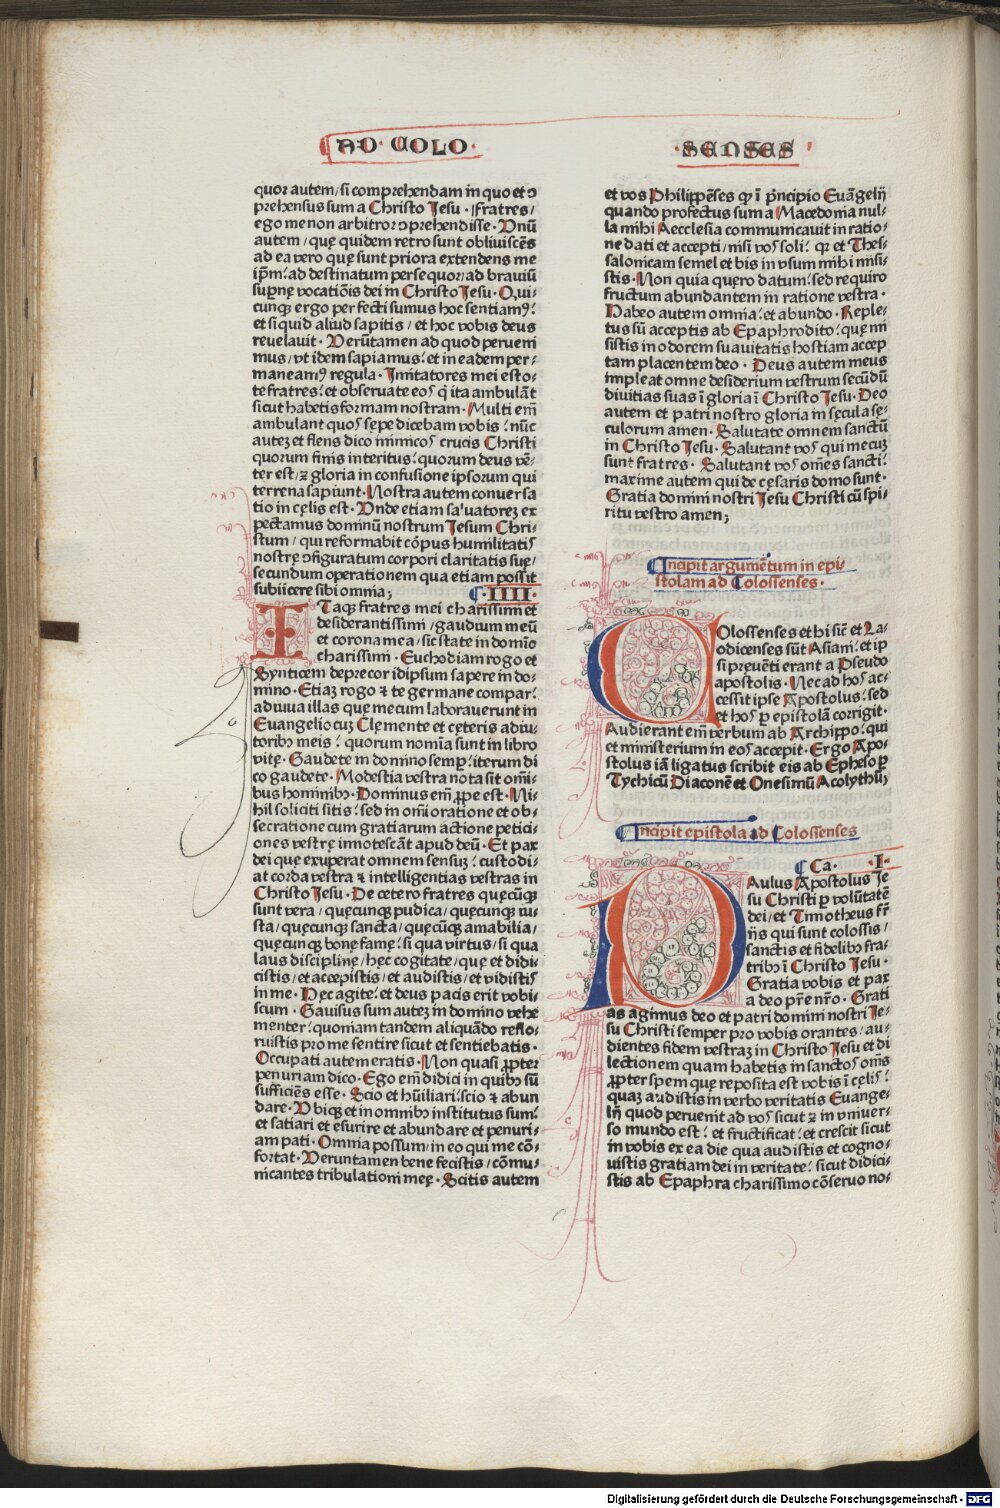 AD COLO
quor autem/ si comprehendam in quo et ↄ
prehensus sum a Christo Jesu · Fratres/
ego me non arbitror ↄprehendisse · Vnū
autem/ quę quidem retro sunt obliuiscēs
ad ea vero quę sunt priora extendens me
ip̄m: ad destinatum persequor/ ad brauiū
supernę vocatiōis dei in Christo Jesu · Qui⸗
cunq; ergo perfecti sumus hoc sentiamꝰ:
et si quid aliud sapitis / et hoc vobis deus
reuelauit · Verūtamen ad quod perueni
mus/ vt idem sapiamus: et in eadem per⸗
maneamꝰ regula · Imitatores mei esto⸗
te fratres: et obseruate eos q̇ ita ambulāt
sicut habetis formam nostram · Multi em̄
ambulant quos sepe dicebam vobis: nūc
autez et flens dico inimicos crucis Christi
quorum finis interitus: quorum deus vē⸗
ter est/ ⁊ gloria in confusione ipsorum qui
terrena sapiunt · Nostra autem conuersa
tio in cęlis est · Vnde etiam saluatorez ex
pectamus dominū nostrum Jesum Chri⸗
stum / qui reformabit cōpus humilitatis
nostrę ↄfiguratum corpori claritatis suę/
secundum operationem qua etiam possit
subiicere sibi omnia;   ¶ · IIII ·
ITaq; fratres mei charissimi et
desiderantissimi / gaudium meū
et corona mea / sic state in domīo
charissimi · Euchodiam rogo et
Synticem deprecor idipsum sapere in do⸗
mino · Etiaz rogo ⁊ te germane compar:
adiuua illas que mecum laborauerunt in
Euangelio cuz Clemente et cęteris adiu⸗
toribꝫ meis: quorum nomīa sunt in libro
vitę · Gaudete in domino semp: iterum di
co gaudete · Modestia vestra nota sit omī⸗
bus hominibꝫ · Dominus em̄ ꝓpe est · Ni⸗
hil soliciti sitis: sed in omī oratione et ob⸗
secratione cum gratiarum actione petici⸗
ones vestrę innotescāt apud deū · Et pax
dei quę exuperat omnem sensuz: custodi⸗
at corda vestra ⁊ intelligentias vestras in
Christo Jesu · De cetero fratres quęcūq;
sunt vera / quęcunq; pudica / quęcunq; iu⸗
sta/ quęcunq; sancta/ quęcūq; amabilia/
quęcunq; bonę famę: si qua virtus/ si qua
laus disciplinę / hęc cogitate/ quę et didi⸗
cistis / et accepistis/ et audistis/ et vidistis
in me · Hec agite: et deus pacis erit vobi⸗
scum · Gauisus sum autez in domino vehe
menter: quoniam tandem aliquādo reflo⸗
ruistis pro me sentire sicut et sentiebatis ·
Occupati autem eratis · Non quasi ꝓpter
penuriam dico · Ego em̄ didici in quibꝫ sū
sufficiēs esse · Scio et hūiliari: scio ⁊ abun
dare · Vbiq; et in omnibꝫ institutus sum:
et satiari et esurire et abundare et penuri⸗
am pati · Omnia possum/ in eo qui me cō⸗
fortat · Veruntamen bene fecistis / cōmu⸗
nicantes tribulationi meę · Scitis autem
SENSES
et vos Philippēses qꝫ ī prīncipio Euāgelij
quando profectus sum a Macedonia nul⸗
la mihi Aecclesia communicauit in ratio⸗
ne dati et accepti/ nisi vos soli: qꝫ et Thes⸗
salonicam semel et bis in vsum mihi misi⸗
stis · Non quia quęro datum: sed requiro
fructum abundantem in ratione vestra ·
Habeo autem omnia: et abundo · Reple⸗
tus sū acceptis ab Epaphrodito: quę mi
sistis in odorem suauitatis hostiam accep
tam placentem deo · Deus autem meus
impleat omne desiderium vestrum secūdū
diuitias suas ī gloria ī Christo Jesu · Deo
autem et patri nostro gloria in sęcula sę⸗
culorum amen · Salutate omnem sanctū
in Christo Jesu · Salutant vos qui mecuz
sunt fratres · Salutant vos om̄es sancti:
maxime autem qui de cęsaris domo sunt ·
Gratia domini nostri Jesu Christi cū spi⸗
ritu vestro amen;
¶Incipit argumētum in epi
stolam ad Colossenses ·
COlossenses et hi siēt La⸗
odicenses sūt Asiani: et ip
si preuēti erant a Pseudo
apostolis · Nec ad hos ac⸗
cessit ipse Apostolus: sed
et hos p epistolā corrigit ·
Audierant em̄ verbum ab Archippo: qui
et ministerium in eos accepit · Ergo Apo⸗
stolus iā ligatus scribit eis ab Epheso p
Tychicū Diaconē et Onesimū Acolythū;
¶Incipit epistola ad Colossenses
¶ Ca · · I ·
PAulus Apostolus Je
su Christi p volūtatē
dei / et Timotheus fr̄
ijs qui sunt colossis/
sanctis et fidelibꝫ fra⸗
tribꝫ ī Christo Jesu ·
Gratia vobis et pax
a deo pr̄e nr̄o · Grati
as agimus deo et patri domini nostri Je⸗
su Christi semper pro vobis orantes: au⸗
dientes fidem vestraz in Christo Jesu et di
lectionem quam habetis in sanctos om̄s
ꝓpter spem quę reposita est vobis ī cęlis:
quaz audistis in verbo veritatis Euange⸗
lij quod peruenit ad vos sicut ⁊ in vniuer⸗
so mundo est: et fructificat: et crescit sicut
in vobis ex ea die qua audistis et cogno⸗
uistis gratiam dei in veritate: sicut didici⸗
stis ab Epaphra charissimo cōseruo no⸗
Digitalisierung gefördert durch die Deutsche Forschungsgemeinschaft - DFG